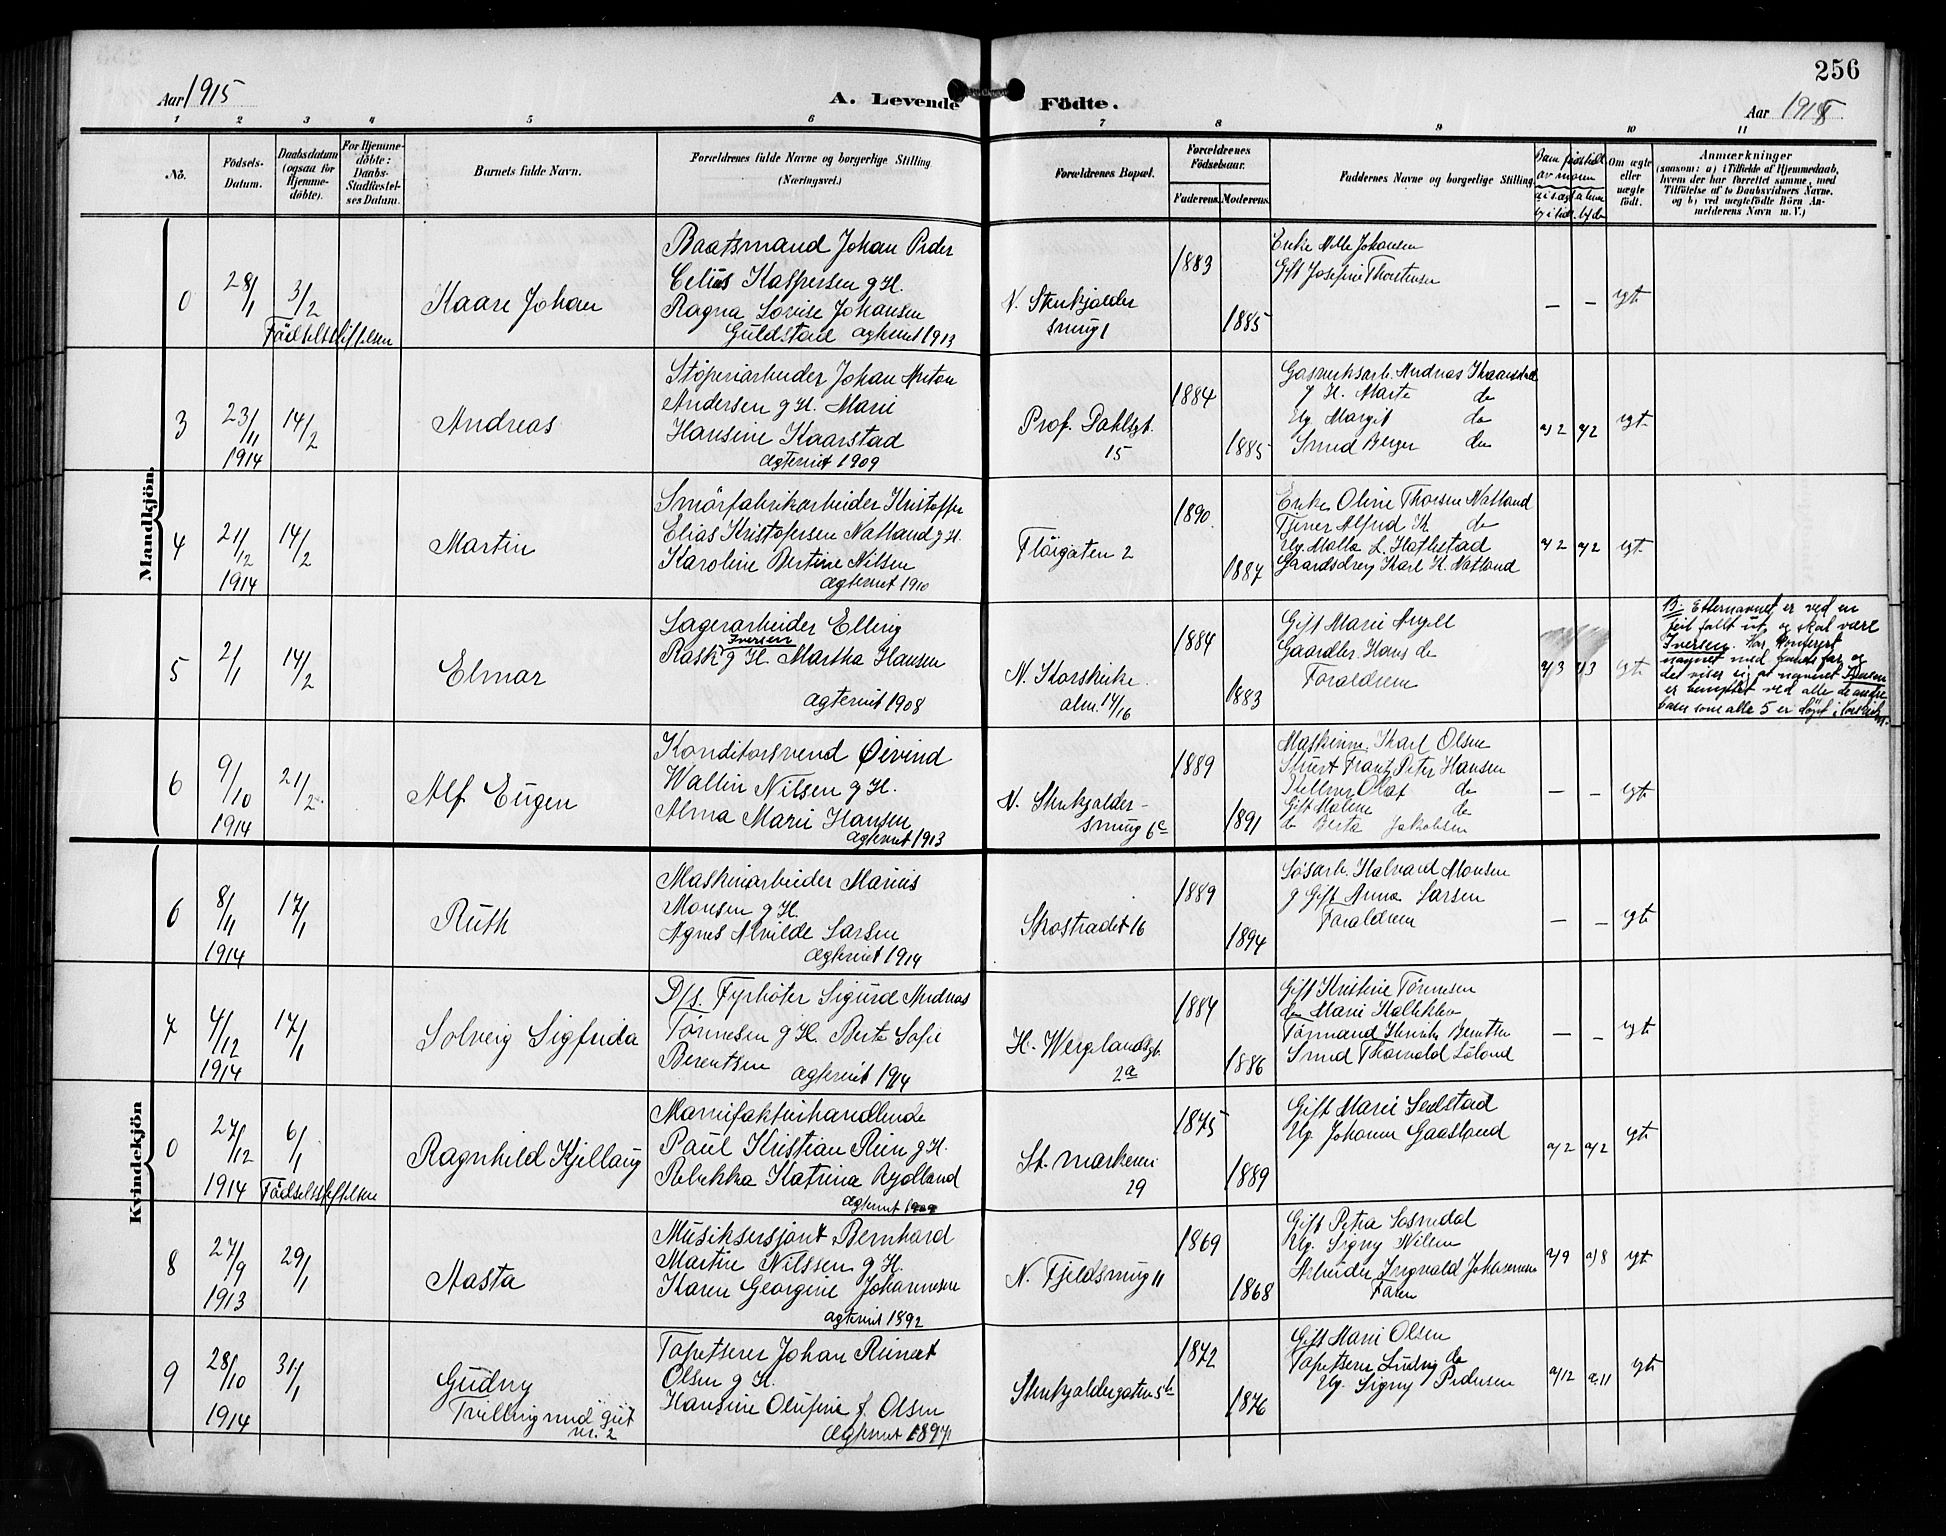 256
Aar 1915
A. Levende Födte.
Aar 1915
1 2 3 4 5 6 7 8 9 10 11
No.
Födsels-Datum.
Daabsdatum (ogsaa for Hjemme-döbte).
For Hjemme-döbte: Daabs-Stadfæstel-ses Datum.
Barnets fulde Navn.
Forældrenes fulde Navne og borgerlige Stilling
(Næringsvei.)
Forældrenes Bopæl.
Forældrenes Födselsaar.
Faderens. Moderens.
Faddernes Navne og borgerlige Stilling
Om ægte eller uægte födt.
Anmærkninger
(saasom: a) i Tilfælde af Hjemmedaab,
hvem der har forrettet samme, med
Tilföielse af to Daabsvidners Navne,
og b) ved uægtefödte Börn An-
melderens Navn m. V.)
Mandkjön.
0
28/1
3/2
Födselsskiftelsen
Kaare Johan
Baatsmand Johan Peder
Celius Kaspersen g H.
Ragna Lovise Johansen
Guldstad ægteviet 1913
N. Stenkjelder
smug 1
1883
1885
Enke Nille Johansen
Gift Josefine Thorstensen
— —
egte
3
23/11
1914
14/2
Andreas
Støperiarbeider Johan Anton
Andersen g H. Marie
Hansine Kaarstad
ægteviet 1909
Prof. Dahlsgt.
15
1884
1885
Gasverksarb. Andreas Kaarstad
g H. Marte do
Ug Margit do
Smed Berger do
a/2 a/2
egt.
4
21/12
1914
14/2
Martin
Smörfabrikarbeider Kristoffer
Elias Kristofersen Natland g H.
Karoline Bertine Nilsen
ægteviet 1910
Flöigaten 2
1890
1887
Enke Oline Thorsen Natland
Tjener Alfred K do
Gaardsdreng Karl K. Natland
a/2 a/2
egt.
5
2/1
14/2
Elmar
Lagerarbeider Elling
Iversen
Rask g H. Martha Hansen
ægteviet 1908
N. Korskirke
alm. 14/16
1884
1883
Gift Marie Myell
Gaardbr. Hans do
Forældrene
a/3 a/3
egt
B. Etternavnet er ved en
feil falt ut og skal være
Iversen. Har konferert
navnet med barnets far og
det viser sig at navnet Iversen
er benyttet ved alle de andre
barn som alle 5 er døpt i Korskirken.
6
9/10
1914
21/2
Alf Eugen
Konditorsvend Øivind
Wallin Nilsen g H.
Alma Marie Hansen
ægteviet 1913
N. Stenkjelder-
smug 6c
1889
1891
Maskinm. Karl Olsen
Stuert Frantz Peter Hansen
Pølsem Olaf do
Gift Malene do
do Berta Jakobsen
— —
egt
Kvindekjön
6
8/11
1914
17/1
Ruth
Maskinarbeider Marius
Monsen g H.
Agnes Alvilde Larsen
ægteviet 1914
Skostrædet 16
1889
1894
Løsarb. Halvard Monsen
g Gift Anna Larsen
Forældrene
— —
egt
7
4/12
1914
17/1
Solveig Sigfrida
D/s. Fyrbøter Sigurd Andreas
Tønnesen g H. Berte Sofie
Berentsen
ægteviet 1914
H. Wergelandsgt.
2a
1884
1886
Gift Kristine Tønnesen
do Marie Kalleklev
Tømmermand Henrik Berntsen
Smed Thorvald Løland
— —
egt
0
27/12
1914
6/1
Födselsskiftelsen
Ragnhild Kjellaug
Manufakturhandlende
Paul Kristian Rein g H.
Rebekka Katrina Rydland
ægteviet 1909
St. Markevei
29
1875
1889
Gift Marie Sedstad
Ug. Johanna Gaasland
a/2 a/2
egt
8
27/9
1913
29/1
Aasta
Musiksersjant Bernhard
Martin Nilssen g H.
Karen Georgine Johannesen
ægteviet 1892
N. Fjeldsmug 11
1869
1868
Gift Petra Losnedal
Ug. Signy Nilsen
Arbeider Ingvald Johannesen
Faren
a/9 a/8
egt
9
28/10
1914
31/1
Gudny
Tvilling med gut
nr. 2
Tapetserer Johan Reinert
Olsen g H.
Hansine Olufine f. Olsen
ægteviet 1897
Stenkjeldergaten 5b
1872
1876
Gift Marie Olsen
Tapetserer Ludvig do
Ug. Signy Pedersen
a/12 a.11
egt